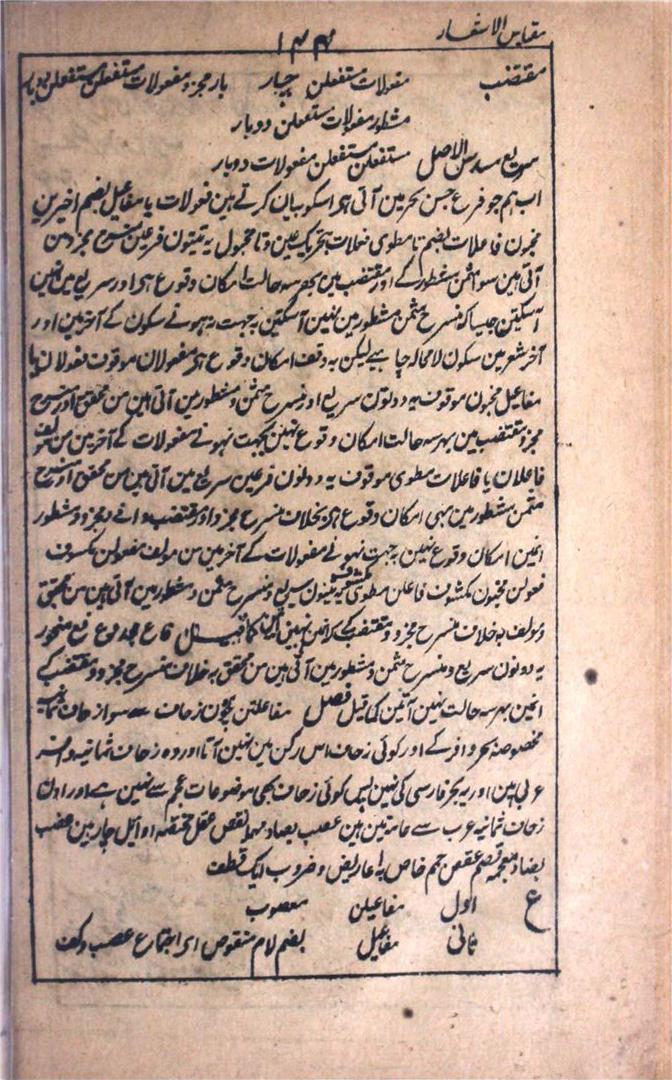 مقاییس الاشعار
۱۴۴
مقتضب مفعولات مستفعلن چہار بار مجزو مفعولات مستفعلن مستفعلن
مشطور مفعولات مستفعلن دوبار
سریع مسدس الاصل مستفعلن مستفعلن مفعولات دوبار
اب ہم جو فرع جس بحر مین آتی ہی اسکو بیان کرتے ہین فعولات یا مفاعیل بضم اخیرین
مخبون فاعلات بضم تا مطوی فعلات بتحریک عین و تا مخبول یہ تینون فرعین منسرح مجزو مین
آتی ہین سوا مثمن مشطور کے اور مقتضب مین بہر سہ حالت امکان وقوع ہی اور سریع مین نہین
آسکتین جیسا کہ منسرح مثمن و مشطور مین نہین آسکتین بجہت نہ ہونے سکون کے آخر مین اور
آخر شعر مین سکون لامحالہ چاہیے لیکن بہ وقف امکان وقوع ہی مفعولان موقوف فعولان یا
مفاعیل مخبون موقوف یہ دونون سریع اور منسرح مثمن و مشطور مین آتی ہین من محقق اور منسرح
مجزو و مقتضب مین بہر سہ حالت امکان وقوع نہین بجہت نہونے مفعولات کے آخر مین من مولف
فاعلان یا فاعلات مطوی موقوف یہ دونون فرعین سریع مین آتی ہین من محقق اور منسرح
مثمن مشطور مین بہی امکان وقوع ہی بخلاف منسرح مجزو اور مقتضب وافی و مجزو و مشطور
انمین امکان وقوع نہین بجہت نہونے مفعولات کے آخر مین من مولف مفعولن مکسوف
فعولن مخبون مکشوف فاعلن مطوی مکشوف یہ تینون سریع و منسرح مثمن و مشطور مین آتی ہین من محقق
و مولف بہ خلاف منسرح مجزو و مقتضب کے کہ انمین نہین آتین کما قیل فاع مجدوع فع منحور
یہ دونون سریع و منسرح مثمن و مشطور مین آتی ہین من محقق بہ خلاف منسرح مجزو و مقتضب کے
انمین بہر سہ حالت نہین آتین کما قیل فصل مفاعلتن بیچون زحاف سے سوا زحاف ثمانیہ
مخصوصہ بحر وافر کے اور کوئی زحاف اس رکن مین نہین آتا اور وہ زحاف ثمانیہ
عربی ہین اور یہ بحر فارسی کی نہین پس کوئی زحاف بھی موضوعات عجم سے نہین ہے اور ان
زحاف ثمانیہ عرب سے عامہ تین ہین عصب بصاد مہملہ نقص عقل مختصہ اوائل چار ہین عضب
بضاد معجمہ قصم عقص جمم خاص بہ اعاریض و ضروب ایک قطف
ع اول مفاعیلن معصوب
ثانی مفاعیل بضم لام منقوص ای اجتماع عصب و کف